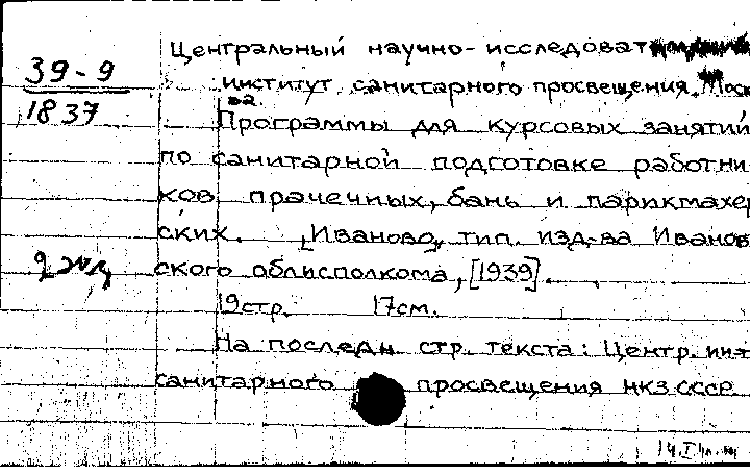 Центральный научно-исследоват
39-9
институт санитарного просвещения. Моск
1837
ва
Программы для курсовых занятий
по санитарной подготовке работни
ков прачечных, бань и парикмахер
ских. „Иваново", тип. изд-ва Иванов
ского облисполкома, [1939].
2 экз
19стр. 17см.
На последн. стр. текста: Центр. ин-т
санитарного просвещения НКЗ СССР